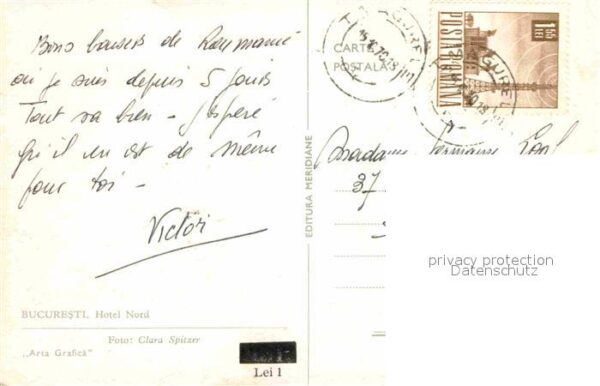 Bons baisers de Roumanie
où je suis depuis 5 jours
Tout va bien - J'espère
qu'il en est de même
pour toi -
Victor
BUCUREŞTI. Hotel Nord
Foto: Clara Spitzer
„Arta Grafică"
Lei 1
EDITURA MERIDIANE
CARTE
POSTALA
POSTA ROMANA
1,55
LEI
Madame Germaine
37
privacy protection
Datenschutz